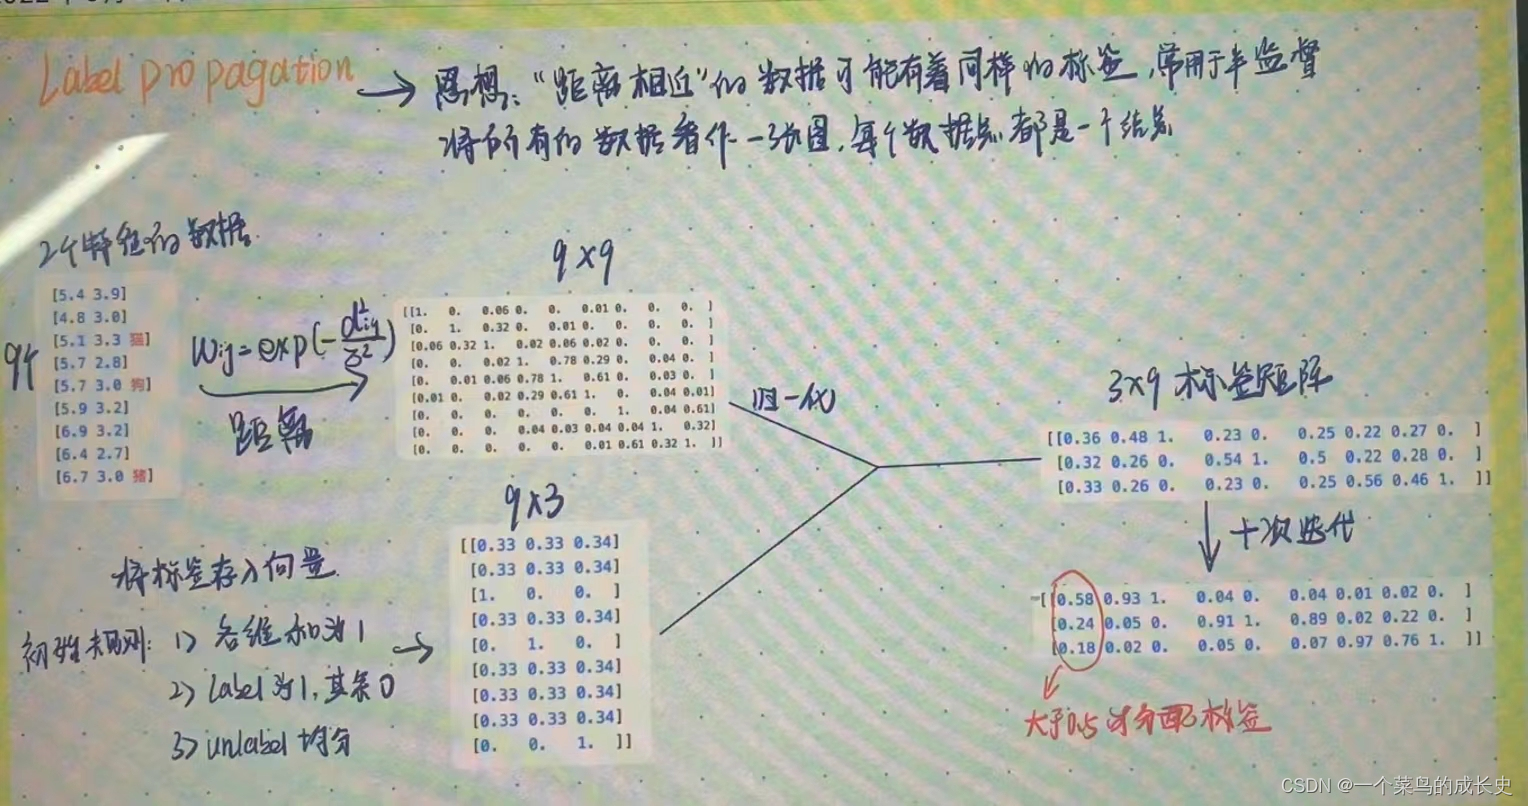 Label propagation → 思想:“距离相近”的数据可能有着同样的标签,常用于半监督
将所有的数据看作一张图,每个数据点都是一个结点
2个特征的数据
9个
[5.4 3.9]
[4.8 3.0]
[5.1 3.3 猫]
[5.7 2.8]
[5.7 3.0 狗]
[5.9 3.2]
[6.9 3.2]
[6.4 2.7]
[6.7 3.0 猪]
Wij=exp(-d²ij/δ²)
距离
9×9
[[1. 0. 0.06 0. 0. 0.01 0. 0. 0. ]
[0. 1. 0.32 0. 0.01 0. 0. 0. 0. ]
[0.06 0.32 1. 0.02 0.06 0.02 0. 0. 0. ]
[0. 0. 0.02 1. 0.78 0.29 0. 0.04 0. ]
[0. 0.01 0.06 0.78 1. 0.61 0. 0.03 0. ]
[0.01 0. 0.02 0.29 0.61 1. 0. 0.04 0.01]
[0. 0. 0. 0. 0. 0. 1. 0.04 0.61]
[0. 0. 0. 0.04 0.03 0.04 0.04 1. 0.32]
[0. 0. 0. 0. 0. 0.01 0.61 0.32 1. ]]
归一化
将标签存入向量
初始规则: 1) 各维和为1 →
2) label为1,其余0
3) unlabel 均分
9×3
[[0.33 0.33 0.34]
[0.33 0.33 0.34]
[1. 0. 0. ]
[0.33 0.33 0.34]
[0. 1. 0. ]
[0.33 0.33 0.34]
[0.33 0.33 0.34]
[0.33 0.33 0.34]
[0. 0. 1. ]]
3×9 标签矩阵
[[0.36 0.48 1. 0.23 0. 0.25 0.22 0.27 0. ]
[0.32 0.26 0. 0.54 1. 0.5 0.22 0.28 0. ]
[0.33 0.26 0. 0.23 0. 0.25 0.56 0.46 1. ]]
十次迭代
[[0.58 0.93 1. 0.04 0. 0.04 0.01 0.02 0. ]
[0.24 0.05 0. 0.91 1. 0.89 0.02 0.22 0. ]
[0.18 0.02 0. 0.05 0. 0.07 0.97 0.76 1. ]]
大于0.5时分配了标签
CSDN @一个菜鸟的成长史